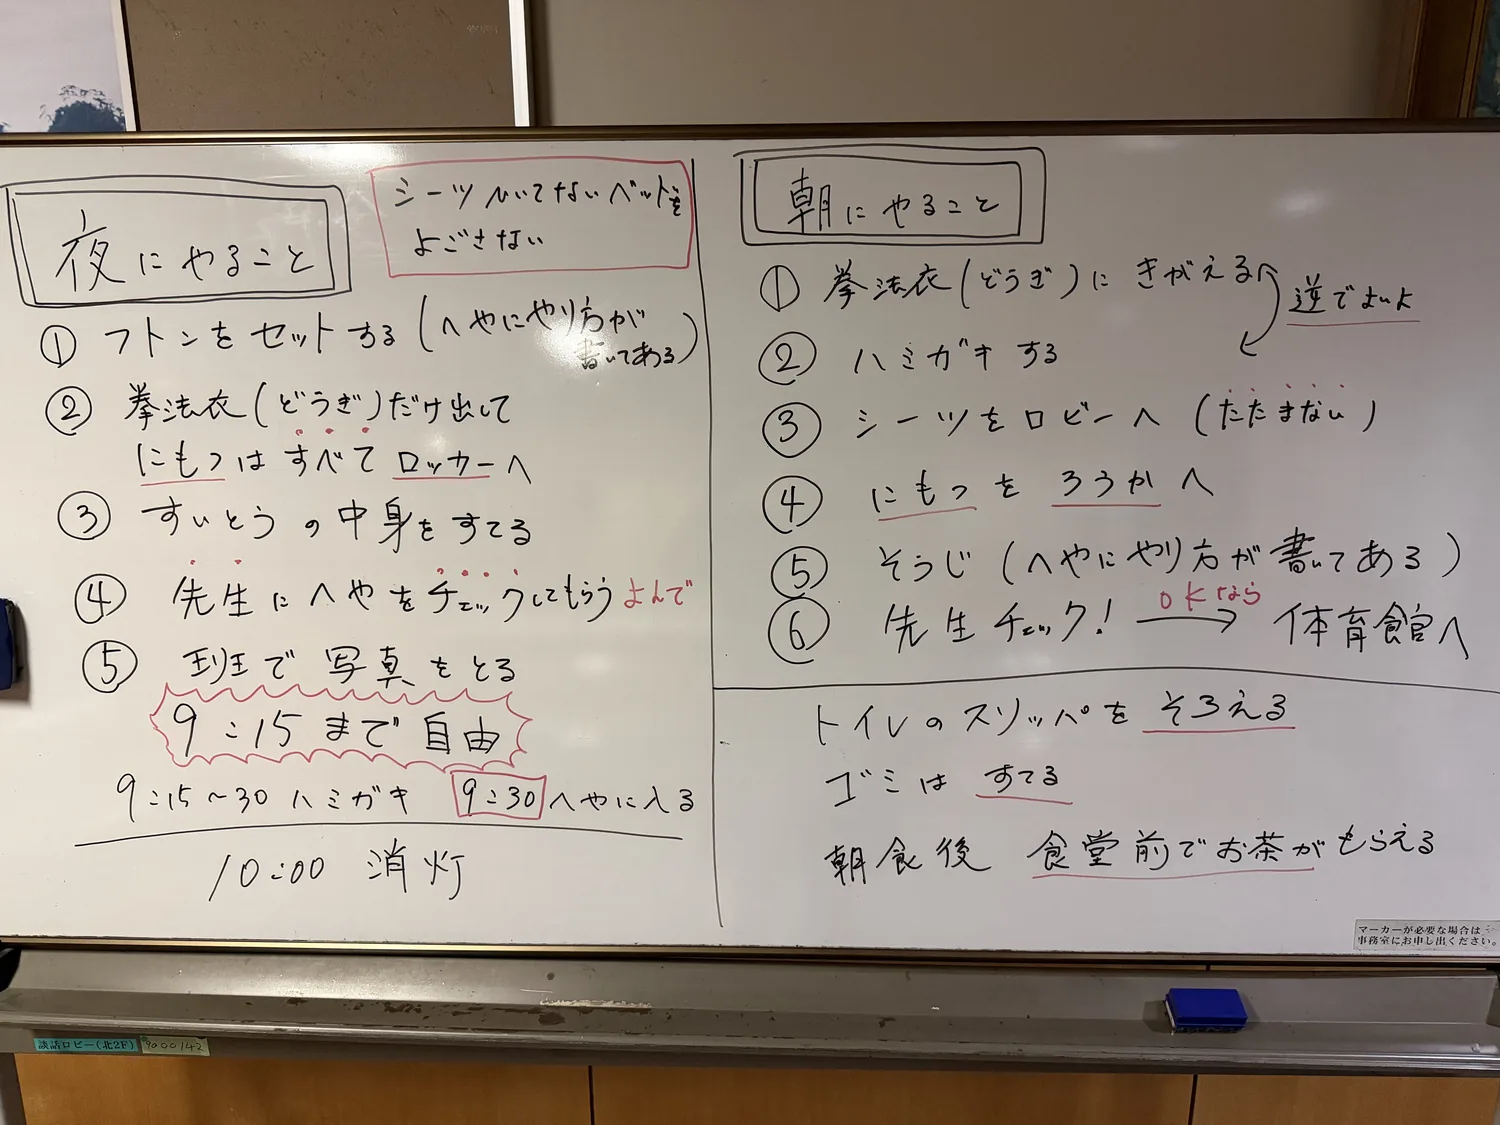 夜にやること
シーツひいてないベットを
よごさない
① フトンをセットする(へやにやり方が
書いてある)
② 拳法衣(どうぎ)だけ出して
にもつはすべてロッカーへ
③ すいとうの中身をすてる
④ 先生にへやをチェックしてもらう よんで
⑤ 班で写真をとる
9:15まで自由
9:15~30 ハミガキ 9:30 へやに入る
10:00 消灯
朝にやること
① 拳法衣(どうぎ)に きがえる
逆でよいよ
② ハミガキする
③ シーツをロビーへ(たたまない)
④ にもつを ろうかへ
⑤ そうじ(へやにやり方が書いてある)
⑥ 先生チェック! OKなら → 体育館へ
トイレのスリッパを そろえる
ゴミは すてる
朝食後 食堂前でお茶がもらえる
マーカーが必要な場合は
事務室にお申し出ください。
談話ロビー(北2F) 9000142